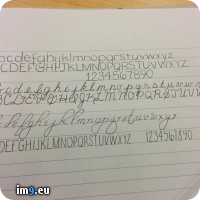 abcdefghijklmnopqrstuvwxyz
ABCDEFGHIJKLMNOPQRSTUVWXYZ
1234567890
abcdefghijklmnopqrstuvw
abcdefghijklmnopqrstuvwxyz
ABCDEFGHIJKLMNOPQRSTUVWXYZ 1234567890
im9.eu